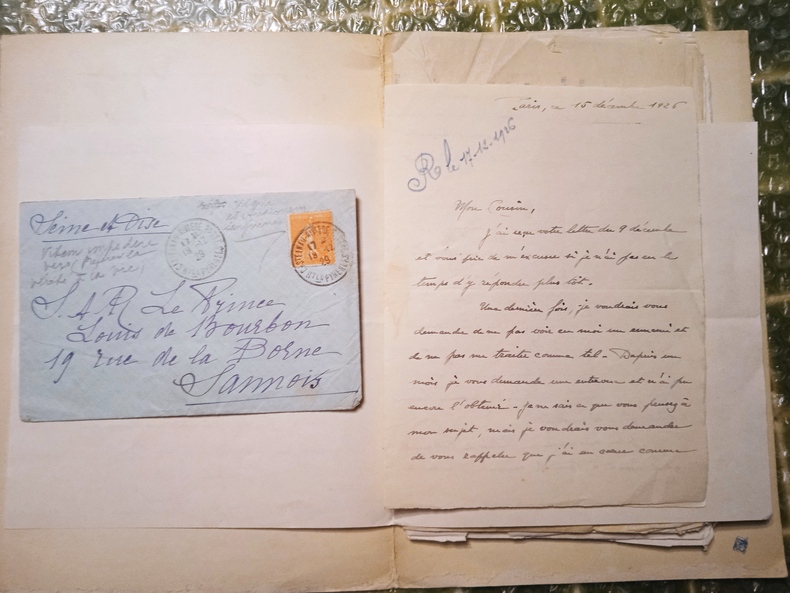 Seine et Oise
S. A. R Le Prince
Louis de Bourbon
19 rue de la Borne
Sannois
17
12
29
Paris, ce 15 décembre 1926
R le 17.12.1926
Mon Cousin,
J'ai reçu votre lettre du 9 décembre
et vous prie de m'excuser si je n'ai pas eu le
temps d'y répondre plus tôt.
Une dernière fois, je voudrais vous
demander de ne pas voir en moi un ennemi et
de ne pas me traiter comme tel. Depuis un
mois je vous demande une entrevue et n'ai pu
encore l'obtenir. Je ne sais ce que vous pensez à
mon sujet, mais je voudrais vous demander
de vous rappeler que j'ai au coeur comme